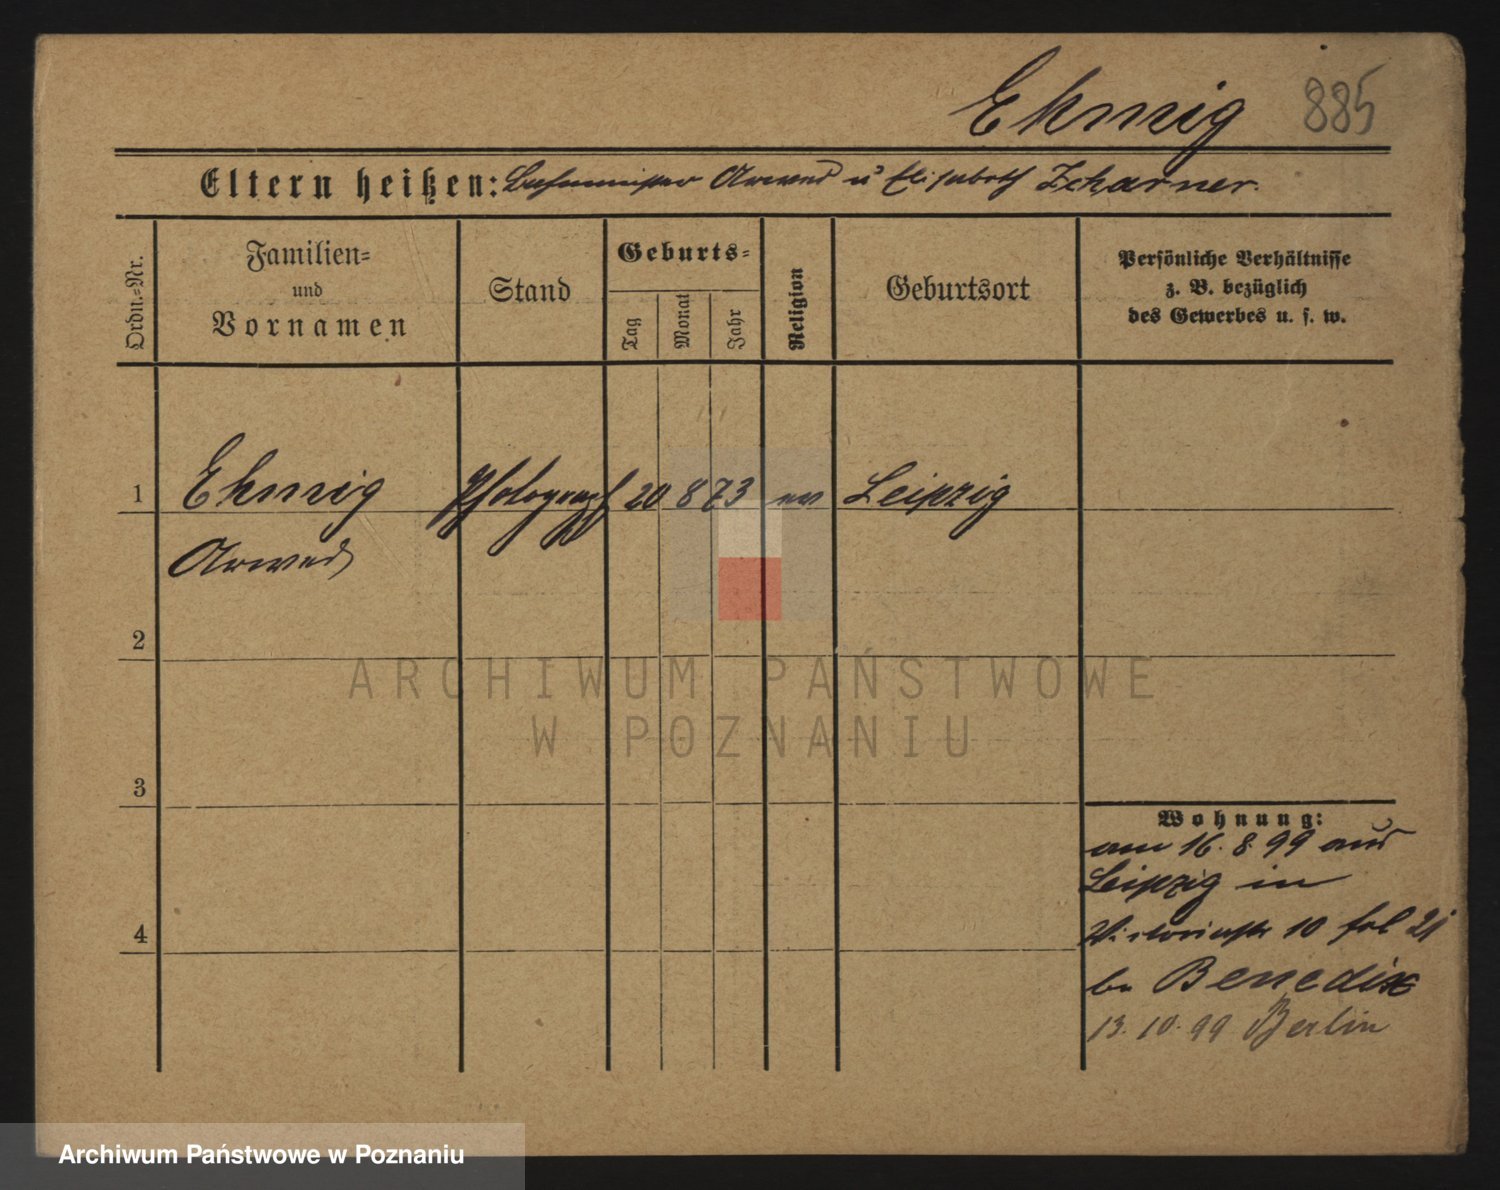 Ehmig 885
Eltern heißen: Arwed u Elisabeth Zcharner.
Ordn.-Nr.
Familien-
und
Vornamen
Stand
Geburts-
Tag
Monat
Jahr
Religion
Geburtsort
Persönliche Verhältnisse
z. B. bezüglich
des Gewerbes u. s. w.
1 Ehmig Photograph 20 8 73 ev Leipzig
Arwed
2
3
4
Wohnung:
am 16. 8. 99 aus
Leipzig in
Victoriastr 10
bei Benedix
13. 10. 99 Berlin
ARCHIWUM PAŃSTWOWE
W POZNANIU
Archiwum Państwowe w Poznaniu